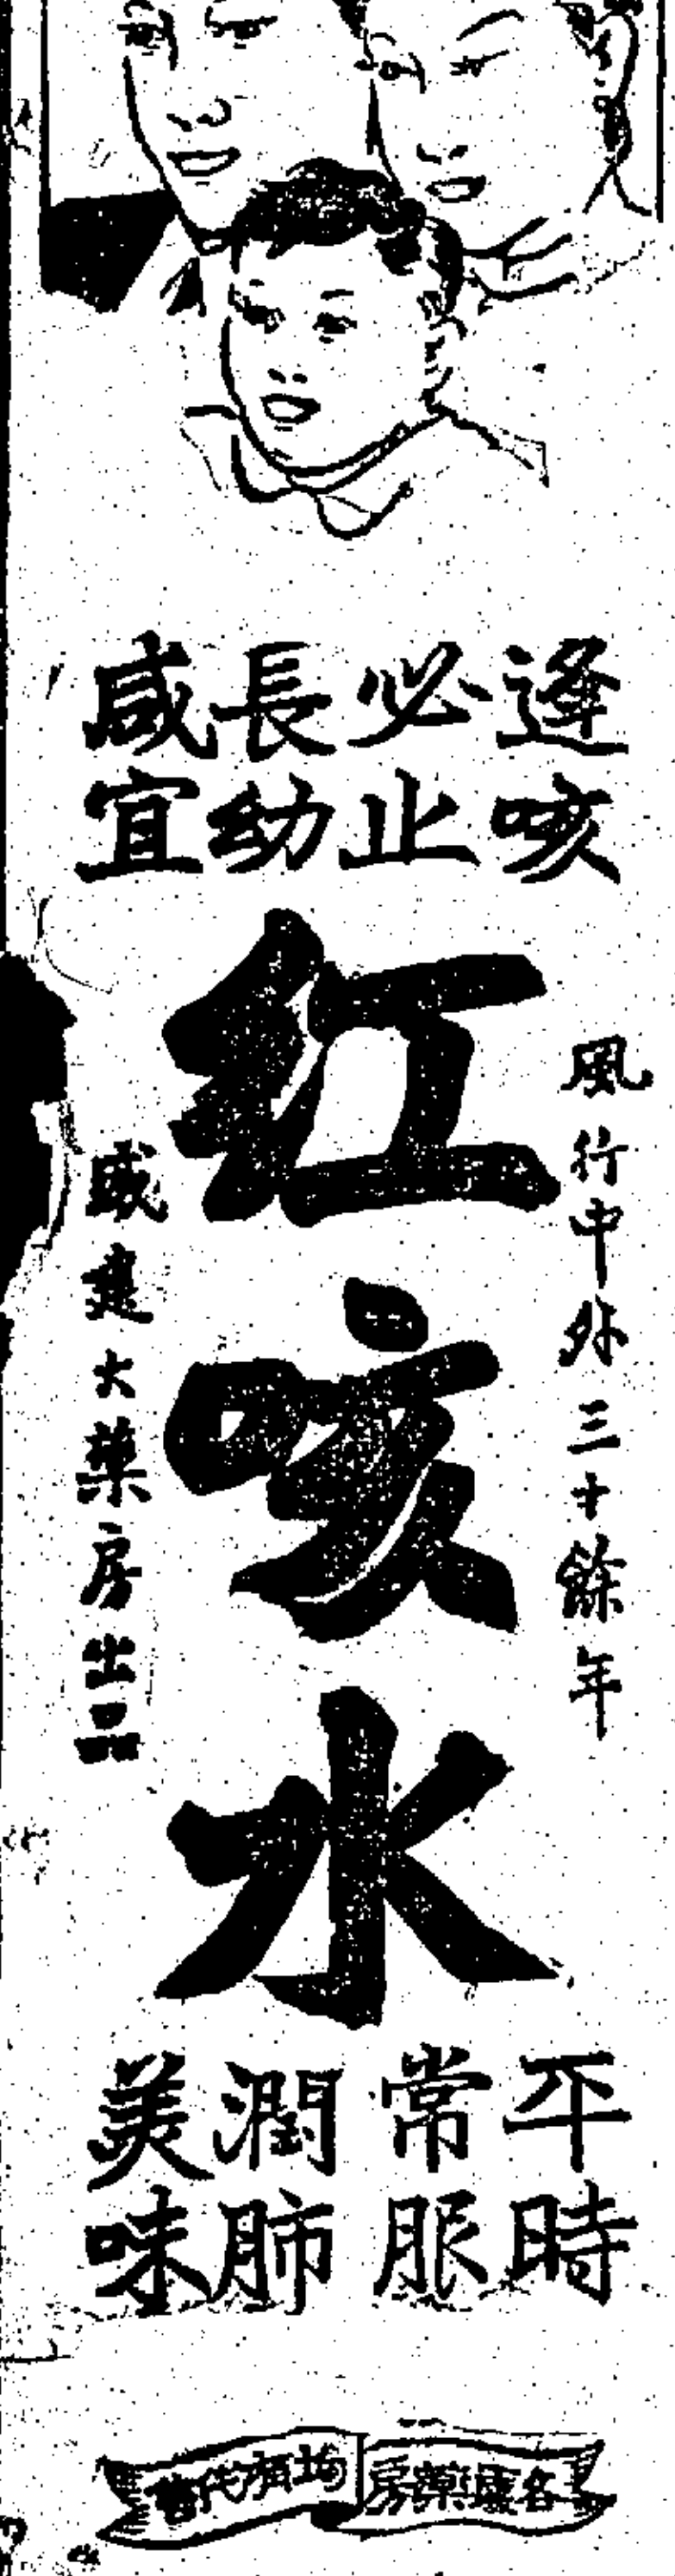 逢咳
必止
長幼
咸宜
風行中外三十餘年
紅咳水
威建大藥房出品
平時
常服
潤肺
美味
各藥房均有代售